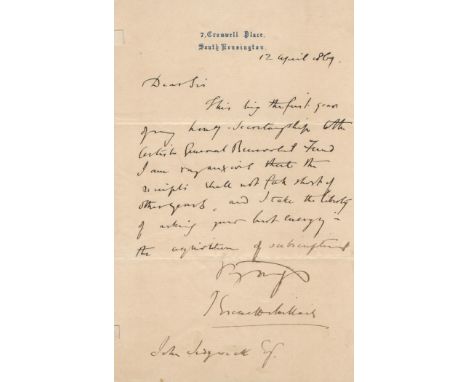 7, Cromwell Place.
South Kensington.
12 April 1869.
Dear Sir
This being the first year
of my hon. secretaryship to the
Artists General Benevolent Fund
I am very anxious that the
receipts shall not fall short of
other years, and I take the liberty
of asking your best energy in
the acquisition of subscriptions
John